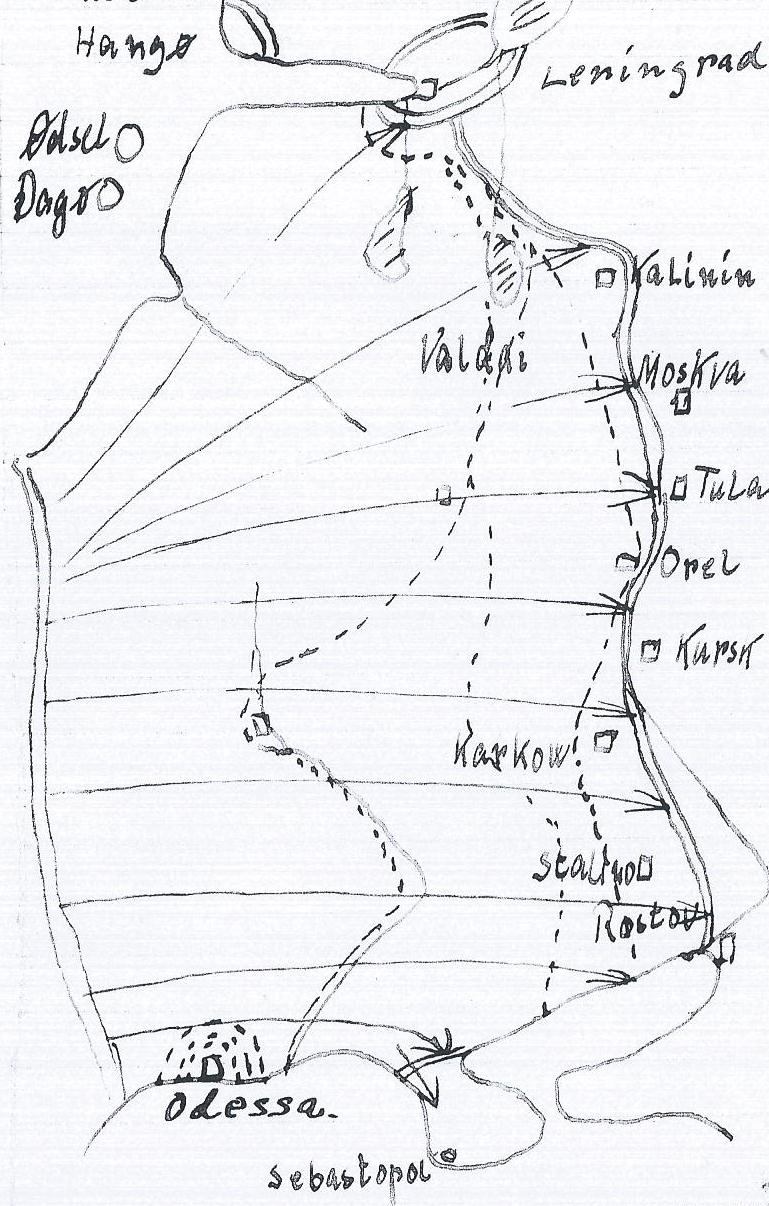 Hangø
Leningrad
Ødsel
Dagø
Kalinin
Valdai
Moskva
Tula
Orel
Kursk
Karkow
Stalino
Rostov
Odessa.
Sebastopol